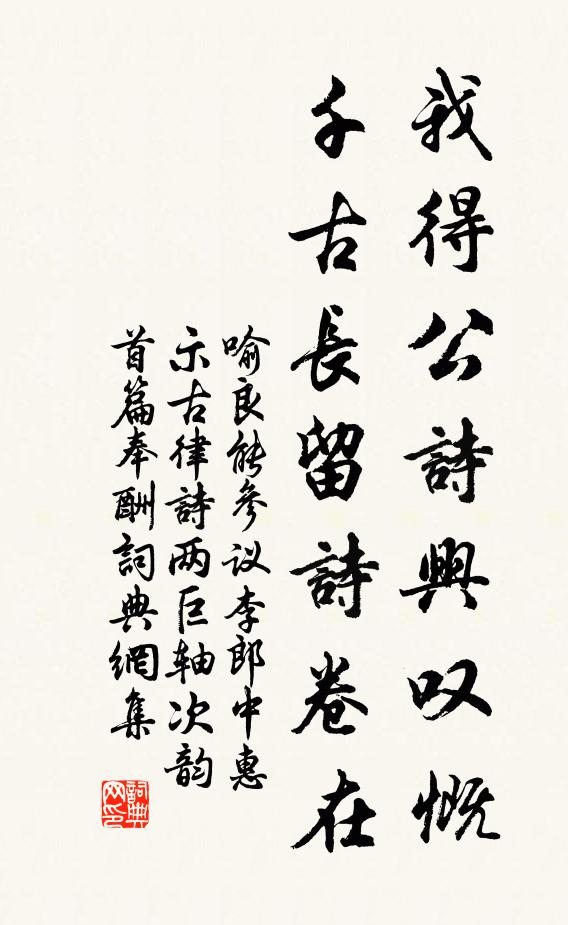 我得公詩興叹慨
千古長留詩卷在
喻良能參议李郎中惠
示古律詩两巨轴次韵
首篇奉酬詞典網集
詞典
网印